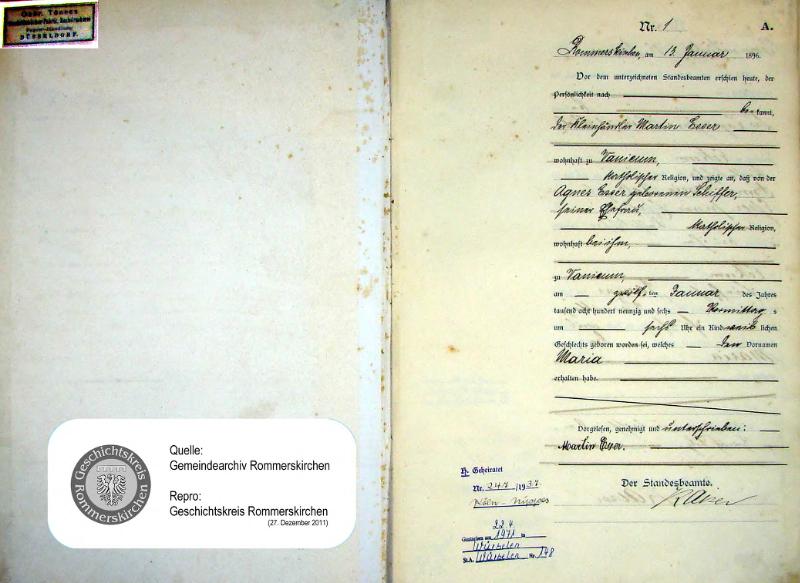 Oscar Tönnes
DÜSSELDORF.
Geschichtskreis
Rommerskirchen
Quelle:
Gemeindearchiv Rommerskirchen
Repro:
Geschichtskreis Rommerskirchen
(27. Dezember 2011)
Nr. 1 A.
Rommerskirchen, am 13. Januar 1896.
Vor dem unterzeichneten Standesbeamten erschien heute, der
Persönlichkeit nach
be kannt,
der Kleinhändler Martin Esser
wohnhaft zu Vanicum,
katholischer Religion, und zeigte an, daß von der
Agnes Esser geborenen Schiffer,
seiner Ehefrau,
katholischer Religion,
wohnhaft bei ihm,
zu Vanicum,
am ten Januar des Jahres
tausend acht hundert neunzig und sechs Vormittags
um sechs Uhr ein Kind weiblichen
Geschlechts geboren worden sei, welches den Vornamen
Maria
erhalten habe.
Vorgelesen, genehmigt und unterschrieben:
Martin Esser.
Der Standesbeamte.
Geheiratet
Nr. 247/1937
Köln-Nippes
Gestorben am 22.4
1971 in
Würselen
St.A. Würselen Nr. 148